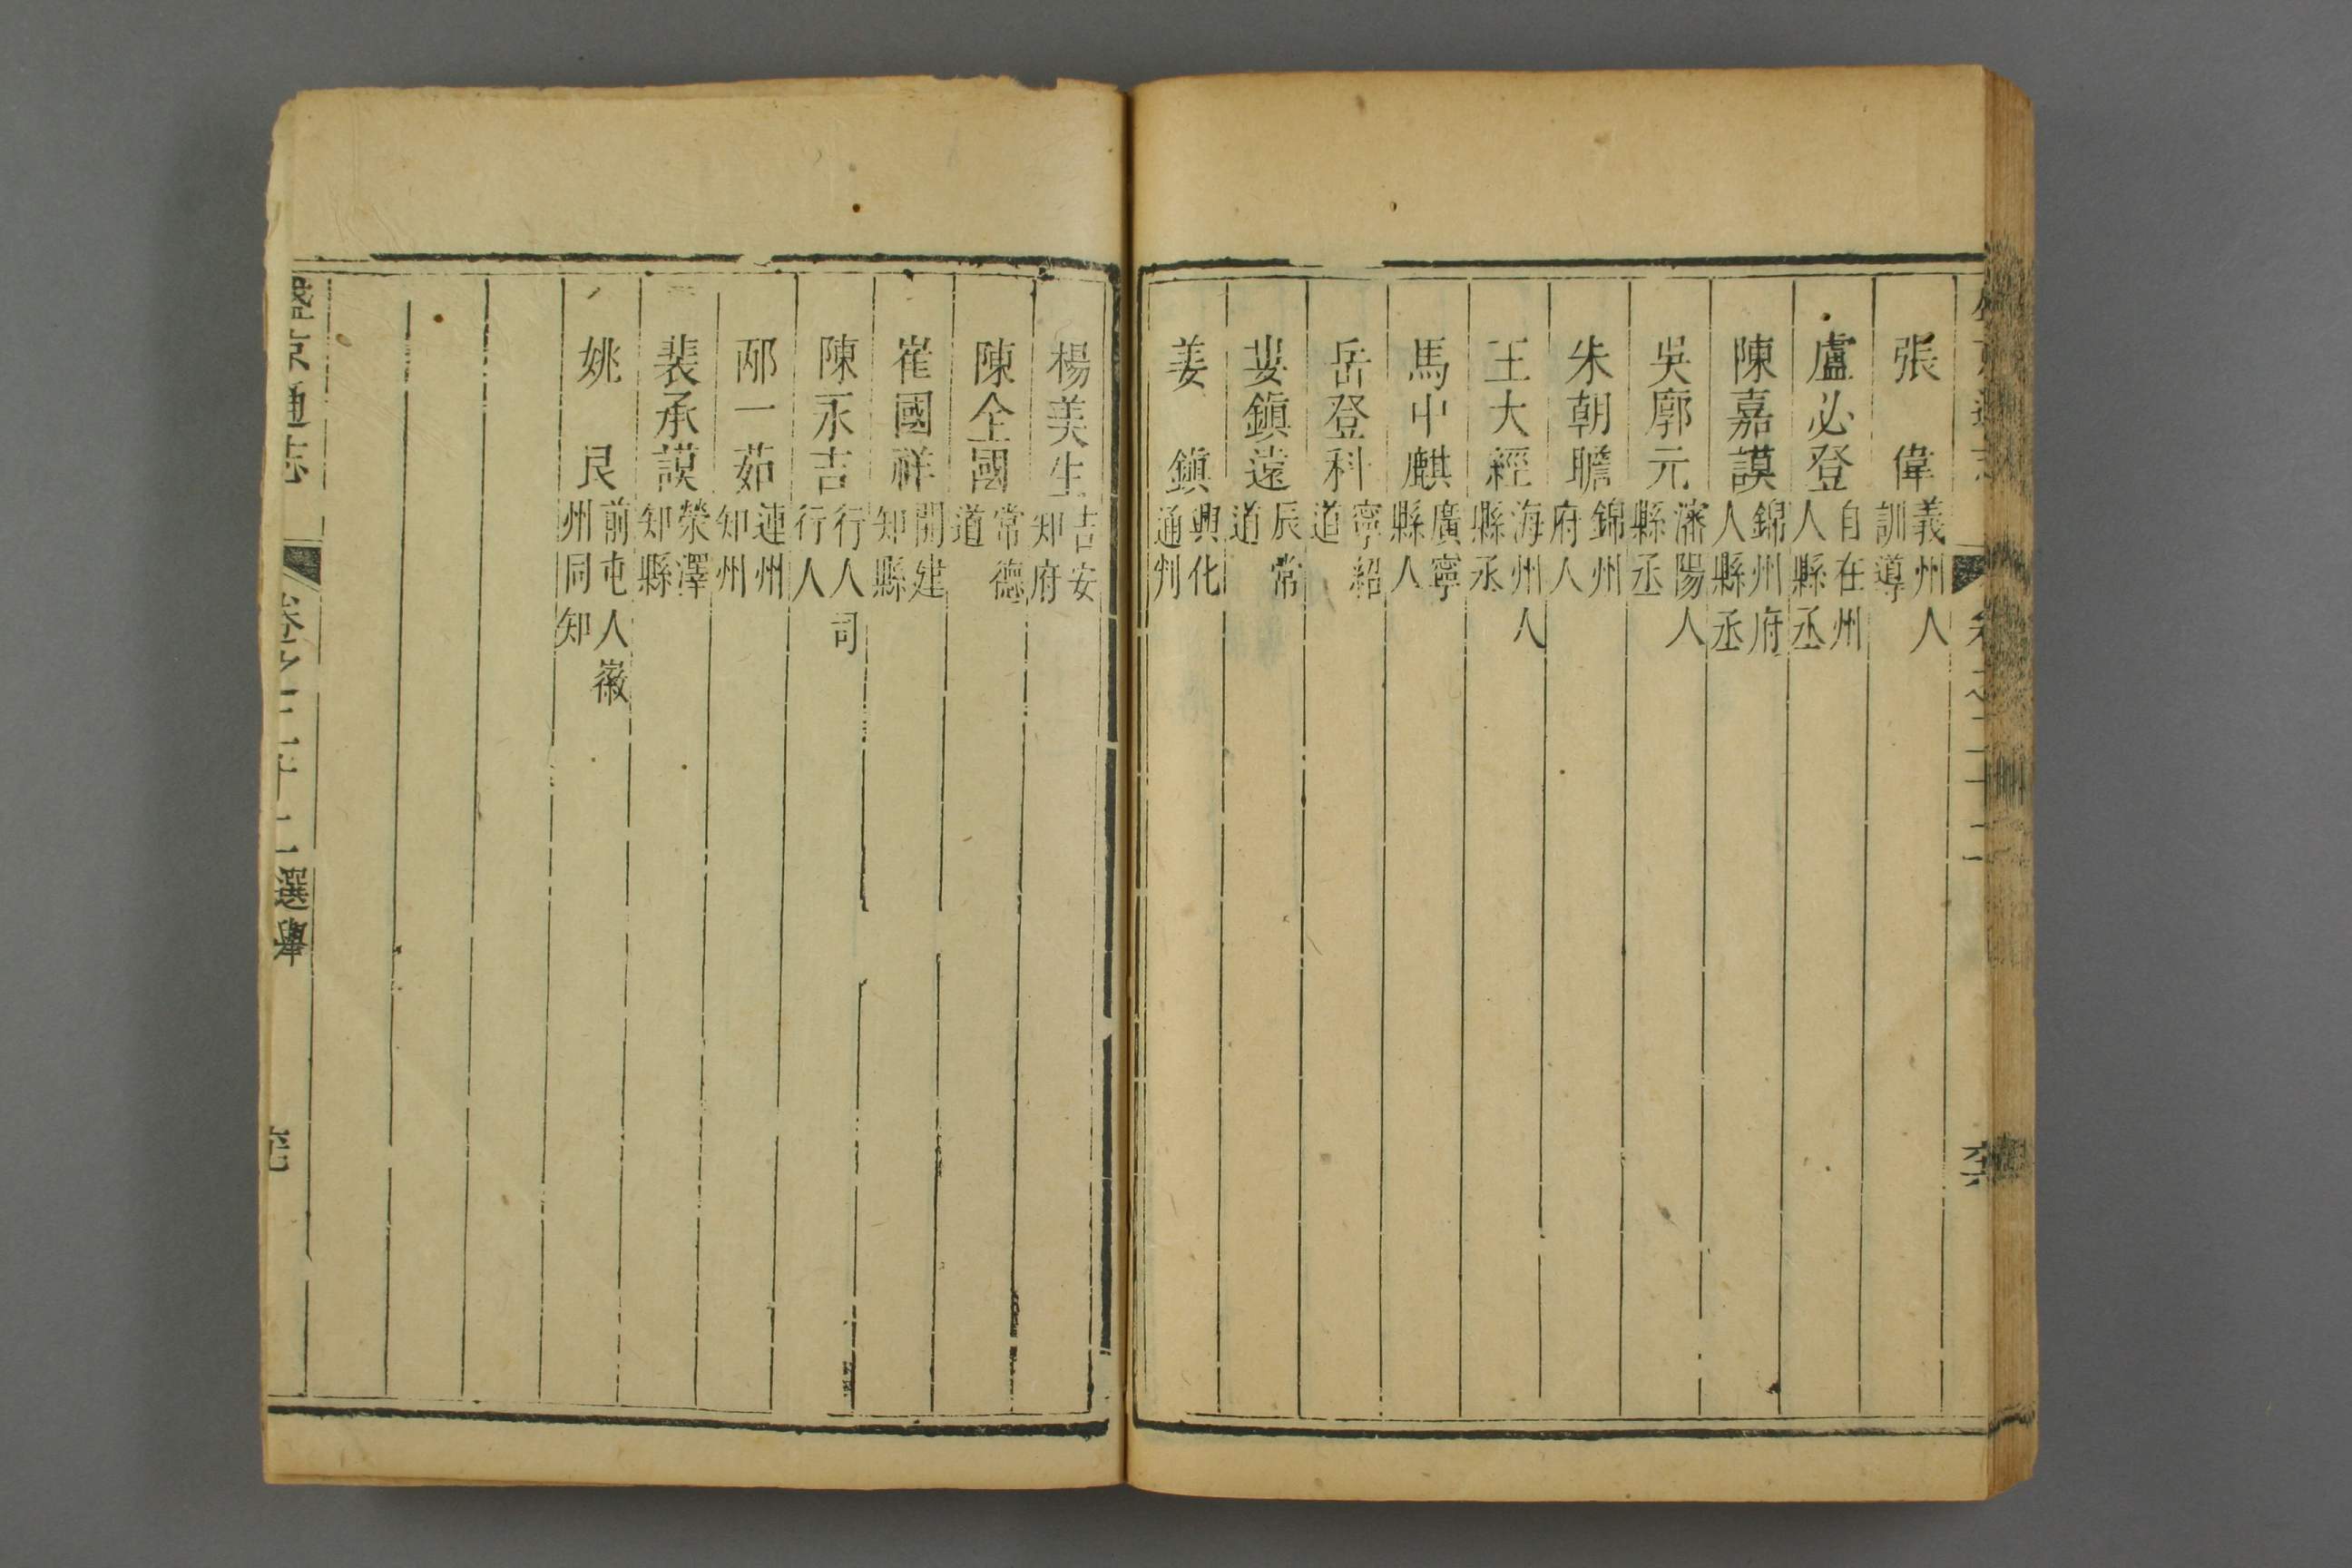 張偉義州人訓導
盧必登自在州人縣丞
陳嘉謨錦州府人縣丞
吳廓元瀋陽人縣丞
朱朝瞻錦州府人
王大經海州人縣丞
馬中麒廣寧縣人
岳登科寧紹道
婁鎮遠辰常道
姜鎮興化通判
楊美生吉安知府
陳全國常德道
崔國祥開建知縣
陳永吉行人司行人
邴一茹連州知州
裴承謨榮澤知縣
姚良前屯人徽州同知
盛京通志 卷之二十二選舉